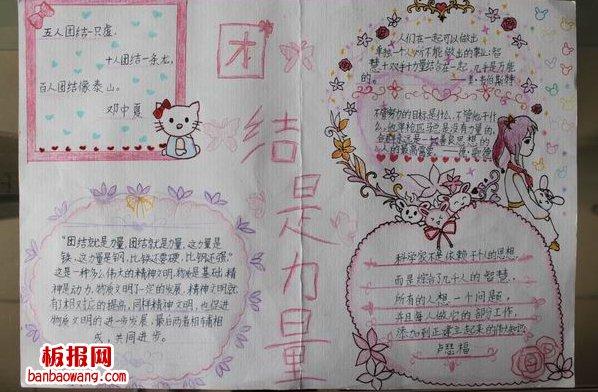 团
结
是
力
量
五人团结一只虎,
十人团结一条龙,
百人团结像泰山。
邓中夏
人们在一起可以做出
单独一个人所不能做出的事业;智
慧+双手+力量结合在一起,几乎是万能
的。
韦伯斯特
不管努力的目标是什么,不管他干什
么,他单枪匹马总是没有力量的,
合群永远是一切善良思想的
人的最高需要。
"团结就是力量,团结就是力量,这力量是
铁,这力量是钢,比铁还要硬,比钢还强"
这是一种多么伟大的精神文明,物质是基础,精
神是动力,物质文明了一定的发展,精神文明就
有相对应的提高,同样精神文明,也促进
物质文明的进一步发展,最后两者相辅相
成,共同进步。
科学家不是依赖于个人的思想,
而是综合了几千人的智慧,
所有的人想一个问题,
并且每人做它的部分工作,
添加到正建立起来的伟大知识
卢瑟福
板报网
banbaowang.com